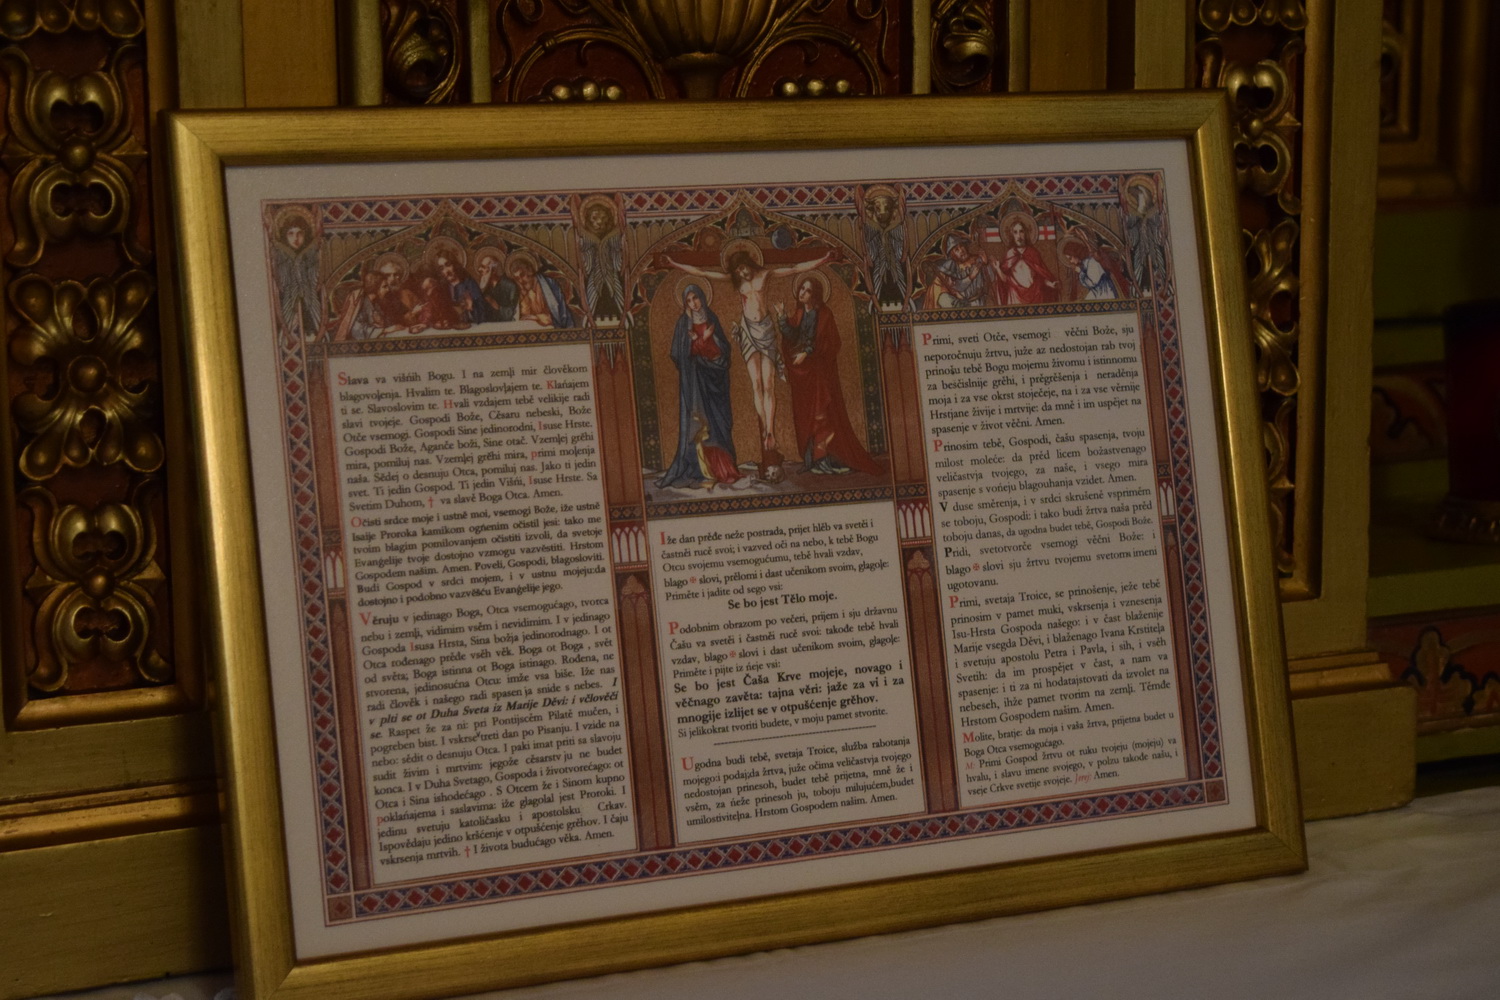 Slava va višńih Bogu. I na zemļi mir človêkom
blagovoļenja. Hvalim te. Blagoslovļajem te. Klańajem
ti se. Slavoslovim te. Hvali vzdajem tebê velikije radi
slavi tvojeje. Gospodi Bože, Cêsaru nebeski, Bože
Otče vsemogi. Gospodi Sine jedinorodni, Isuse Hrste.
Gospodi Bože, Aganče boži, Sine otač. Vzemļej grêhi
mira, pomiluj nas. Vzemļej grêhi mira, primi moļenja
naša. Sêdej o desnuju Otca, pomiluj nas. Jako ti jedin
svet. Ti jedin Gospod. Ti jedin Višńi, Isuse Hrste. Sa
Svetim Duhom, † va slavê Boga Otca. Amen.
Očisti srdce moje i ustnê moi, vsemogi Bože, iže ustnê
Isaije Proroka kamikom ogńenim očistil jesi: tako me
tvoim blagim pomilovanjem očistiti izvoli, da svetoje
Evanģelije tvoje dostojno vzmogu vazvêstiti. Hrstom
Gospodem našim. Amen. Poveli, Gospodi, blagosloviti.
Budi Gospod v srdci mojem, i v ustnu mojeju:da
dostojno i podobno vazvêšću Evanģelije jego.
Vêruju v jedinago Boga, Otca vsemogućago, tvorca
nebu i zemļi, vidimim vsêm i nevidimim. I v jedinago
Gospoda Isusa Hrsta, Sina božja jedinorodnago. I ot
Otca roĵenago prêĵe vsêh vêk. Boga ot Boga , svêt
od svêta; Boga istinna ot Boga istinago. Roĵena, ne
stvorena, jedinosućna Otcu: imže vsa biše. Iže nas
radi človêk i našego radi spasenja snide s nebes. I
v plti se ot Duha Sveta iz Marije Dêvi: i včlovêči
se. Raspet že za ni: pri Pontijscêm Pilatê mučen, i
pogreben bist. I vskrse treti dan po Pisanju. I vzide na
nebo: sêdit o desnuju Otca. I paki imat priti sa slavoju
sudit živim i mrtvim: jegože cêsarstvju ne budet
konca. I v Duha Svetago, Gospoda i životvorećago: ot
Otca i Sina ishodećago . S Otcem že i Sinom kupno
poklańajema i saslavima: iže glagolal jest Proroki. I
jedinu svetuju katoličasku i apostolsku Crkav.
Ispovêdaju jedino kršćenje v otpušćenje grêhov. I čaju
vskrsenja mrtvih. † I života budućago vêka. Amen.
Iže dan prêĵe neže postrada, prijet hlêb va svetêi i
častnêi rucê svoi; i vazved oči na nebo, k tebê Bogu
Otcu svojemu vsemogućumu, tebê hvali vzdav,
blago ✠ slovi, prêlomi i dast učenikom svoim, glagoļe:
Primête i jadite od sego vsi:
Se bo jest Têlo moje.
Podobnim obrazom po večeri, prijem i siju državnu
Čašu va svetêi i častnêi rucê svoi: takoĵe tebê hvali
vzdav, blago ✠ slovi i dast učenikom svoim, glagoļe:
Primête i pijte iz ńeje vsi:
Se bo jest Čaša Krve mojeje, novago i
vêčnago zavêta: tajna vêri: jaže za vi i za
mnogije izlijet se v otpušćenje grêhov.
Si jelikokrat tvoriti budete, v moju pamet stvorite.
Ugodna budi tebê, svetaja Troice, služba rabotanja
nedostojan prinesoh, budet tebê prijetna, mnê že i
vsêm, za ńeže prinesoh ju, toboju milujućem,budet
umilostiviteļna. Hrstom Gospodem našim. Amen.
Primi, sveti Otče, vsemogi vêčni Bože, siju
neporočnuju žrtvu, juže az nedostojan rab tvoj
prinošu tebê Bogu mojemu živomu i istinnomu
za besčislnije grêhi, i prêgrêšenja i neraĵenja
moja i za vse okrst stojećeje, na i za vse vêrnije
Hrstjane živije i mrtvije: da mnê i im uspêjet na
spasenje v život vêčni. Amen.
Prinosim tebê, Gospodi, čašu spasenja, tvoju
milost moleće: da prêd licem božastvenago
veličastvja tvojego, za naše, i vsego mira
spasenje s vońeju blagouhanja vzidet. Amen.
V duse smêrenja, i v srdci skrušenê vsprimêm
se toboju, Gospodi: i tako budi žrtva naša prêd
toboju danas, da ugodna budet tebê, Gospodi Bože.
Pridi, svetotvorče vsemogi vêčni Bože: i
blago ✠ slovi siju žrtvu tvojemu svetomu imeni
ugotovanu.
Primi, svetaja Troice, se prinošenje, ježe tebê
prinosim v pamet muki, vskrsenja i vznesenja
Isu-Hrsta Gospoda našego: i v čast blaženije
Marije vsegda Dêvi, i blaženago Ivana Krstiteļa
i svetuju apostolu Petra i Pavla, i sih, i vsêh
Svetih: da im prospêjet v čast, a nam va
spasenje: i ti za ni hodatajstovati da izvolet na
nebeseh, ihže pamet tvorim na zemļi. Têmĵe
Hrstom Gospodem našim. Amen.
Molite, bratje: da moja i vaša žrtva, prijetna budet u
Boga Otca vsemogućago.
M: Primi Gospod žrtvu ot ruku tvojeju (mojeju) va
hvalu, i slavu imene svojego, v polzu takoĵe našu, i
vseje Crkve svetije svojeje. Jerej: Amen.